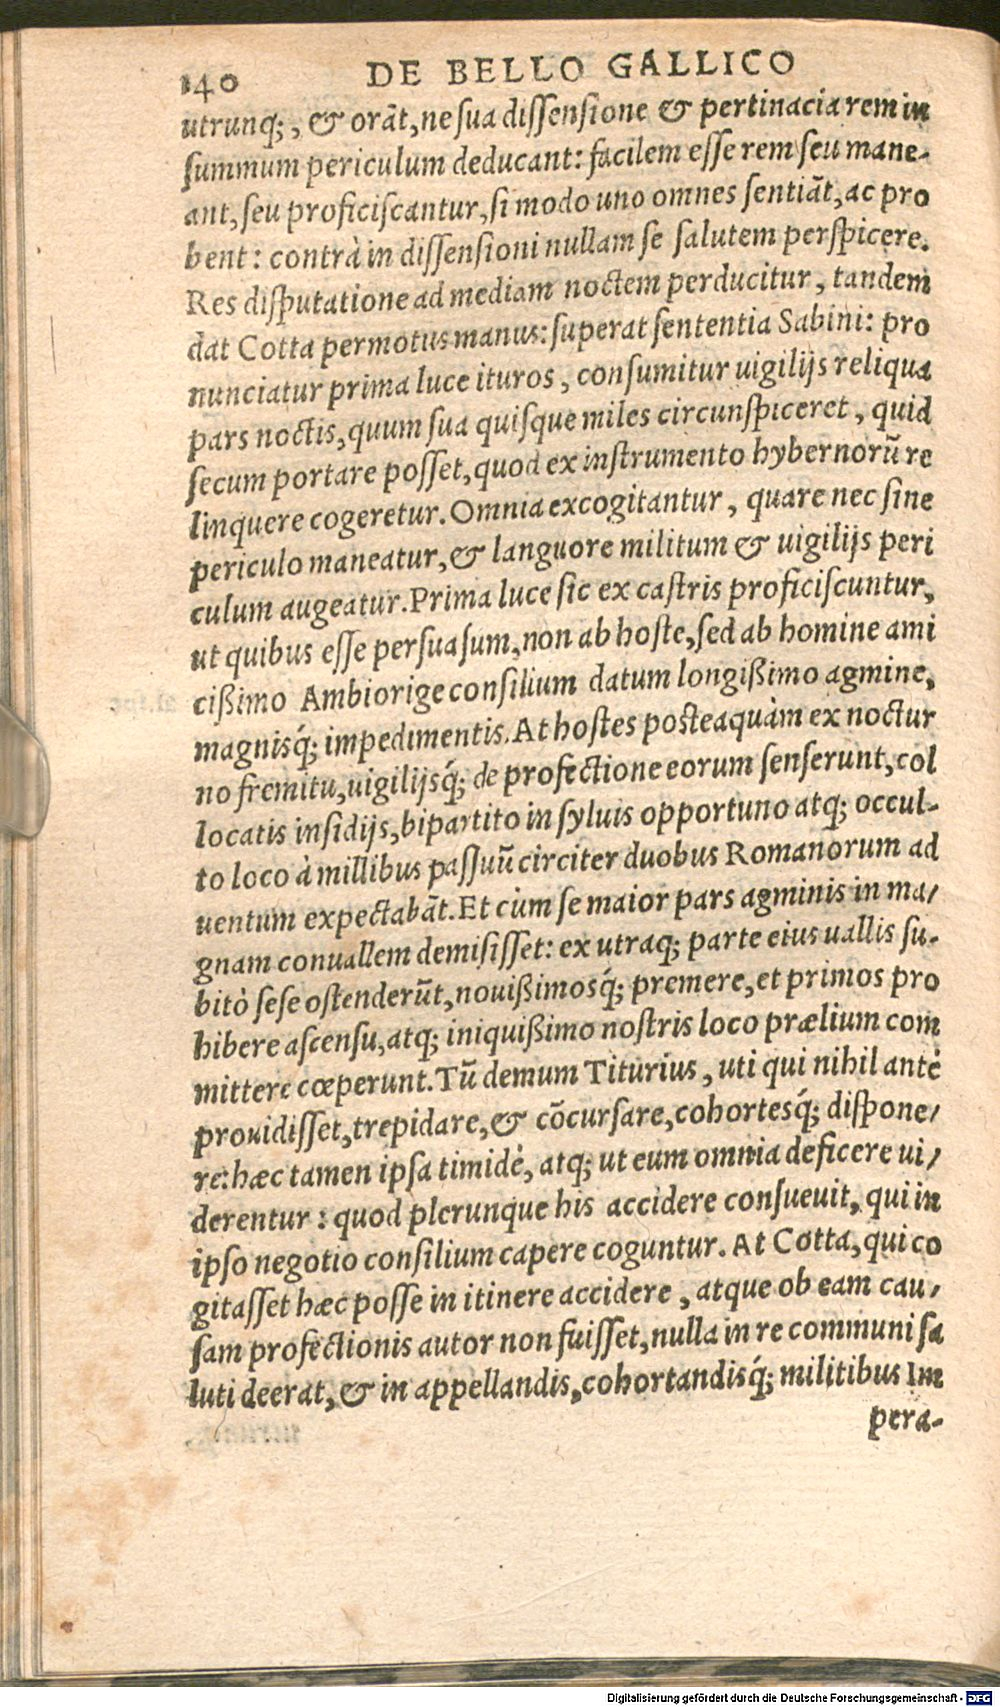 140 DE BELLO GALLICO
utrunq;, & orãt, ne sua dissensione & pertinacia rem in
summum periculum deducant: facilem esse rem seu mane-
ant, seu proficiscantur, si modo uno omnes sentiãt, ac pro
bent: contrà in dissensioni nullam se salutem perspicere.
Res disputatione ad mediam noctem perducitur, tandem
dat Cotta permotus manus: superat sententia Sabini: pro
nunciatur prima luce ituros, consumitur uigilijs reliqua
pars noctis, quum sua quisque miles circunspiceret, quid
secum portare posset, quod ex instrumento hybernorũ re
linquere cogeretur. Omnia excogitantur, quare nec sine
periculo maneatur, & languore militum & uigilijs peri
culum augeatur. Prima luce sic ex castris proficiscuntur,
ut quibus esse persuasum, non ab hoste, sed ab homine ami
cißimo Ambiorige consilium datum longißimo agmine,
magnisq́; impedimentis. At hostes posteaquàm ex noctur
no fremitu, uigilijsq́; de profectione eorum senserunt, col
locatis insidijs, bipartito in syluis opportuno atq; occul-
to loco à millibus passuũ circiter duobus Romanorum ad
uentum expectabãt. Et cùm se maior pars agminis in ma/
gnam conuallem demisisset: ex utraq; parte eius uallis su-
bitò sese ostenderũt, nouißimosq́; premere, et primos pro
hibere ascensu, atq; iniquißimo nostris loco prælium com
mittere cœperunt. Tũ demum Titurius, uti qui nihil antè
prouidisset, trepidare, & cõcursare, cohortesq́; dispone/
re: hæc tamen ipsa timidè, atq; ut eum omnia deficere ui/
derentur: quod plerunque his accidere consueuit, qui in
ipso negotio consilium capere coguntur. At Cotta, qui co
gitasset hæc posse in itinere accidere, atque ob eam cau/
sam profectionis autor non fuisset, nulla in re communi sa
luti deerat, & in appellandis, cohortandisq́; militibus Im
pera-
Digitalisierung gefördert durch die Deutsche Forschungsgemeinschaft - DFG